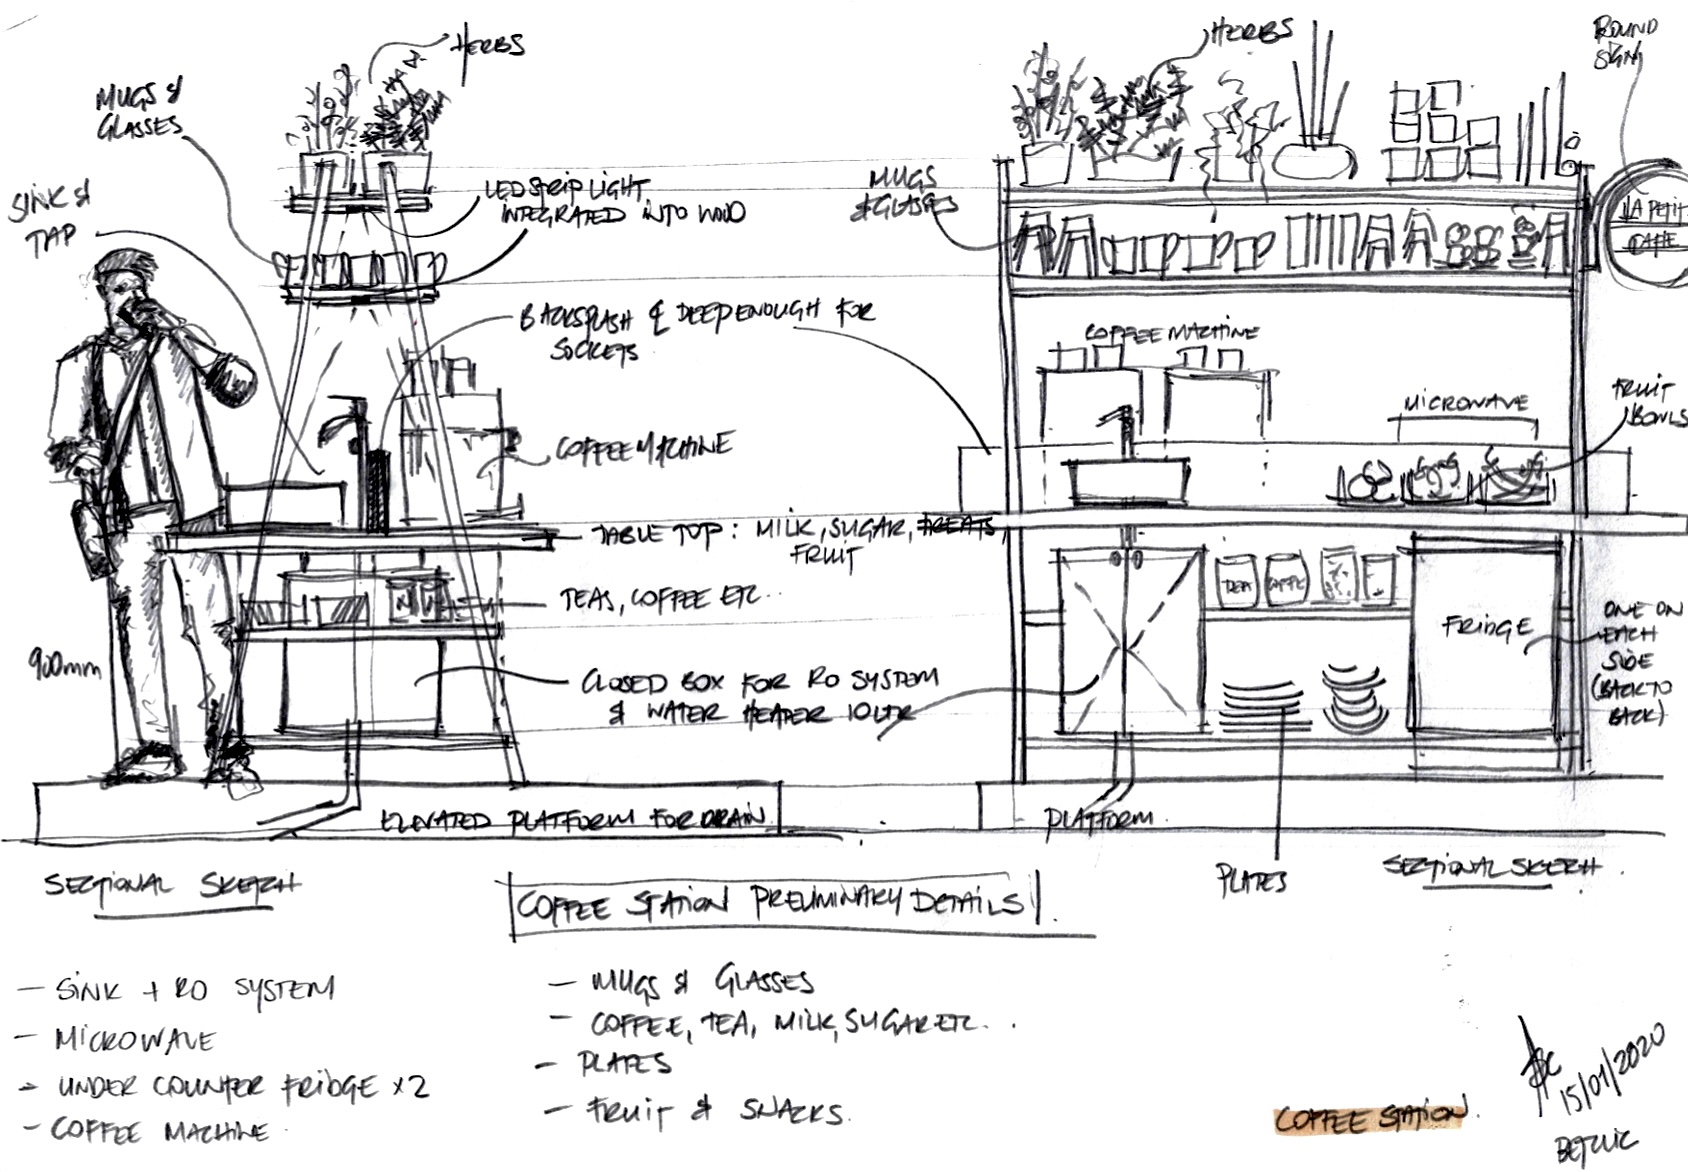 HERBS
MUGS &
GLASSES
SINK &
TAP
LED STRIP LIGHT
INTEGRATED INTO WOOD
BACKSPLASH & DEEP ENOUGH FOR
SOCKETS
COFFEE MACHINE
TABLE TOP: MILK, SUGAR, TREATS,
FRUIT
TEAS, COFFEE ETC..
900mm
CLOSED BOX FOR RO SYSTEM
& WATER HEATER 10LTR
ELEVATED PLATFORM FOR DRAIN
SECTIONAL SKETCH
HERBS
ROUND
SIGN
MUGS
& GLASSES
LA PETIT
CAFFE
COFFEE MACHINE
MICROWAVE
FRUIT
BOWLS
TEA
COFFE
FRIDGE
ONE ON
EACH
SIDE
(BACK TO
BACK)
PLATFORM
PLATES
SECTIONAL SKETCH
COFFEE STATION PRELIMINARY DETAILS
- SINK + RO SYSTEM
- MICROWAVE
- UNDER COUNTER FRIDGE x2
- COFFEE MACHINE
- MUGS & GLASSES
- COFFEE, TEA, MILK, SUGAR ETC...
- PLATES
- FRUIT & SNACKS.
COFFEE STATION.
15/01/2020